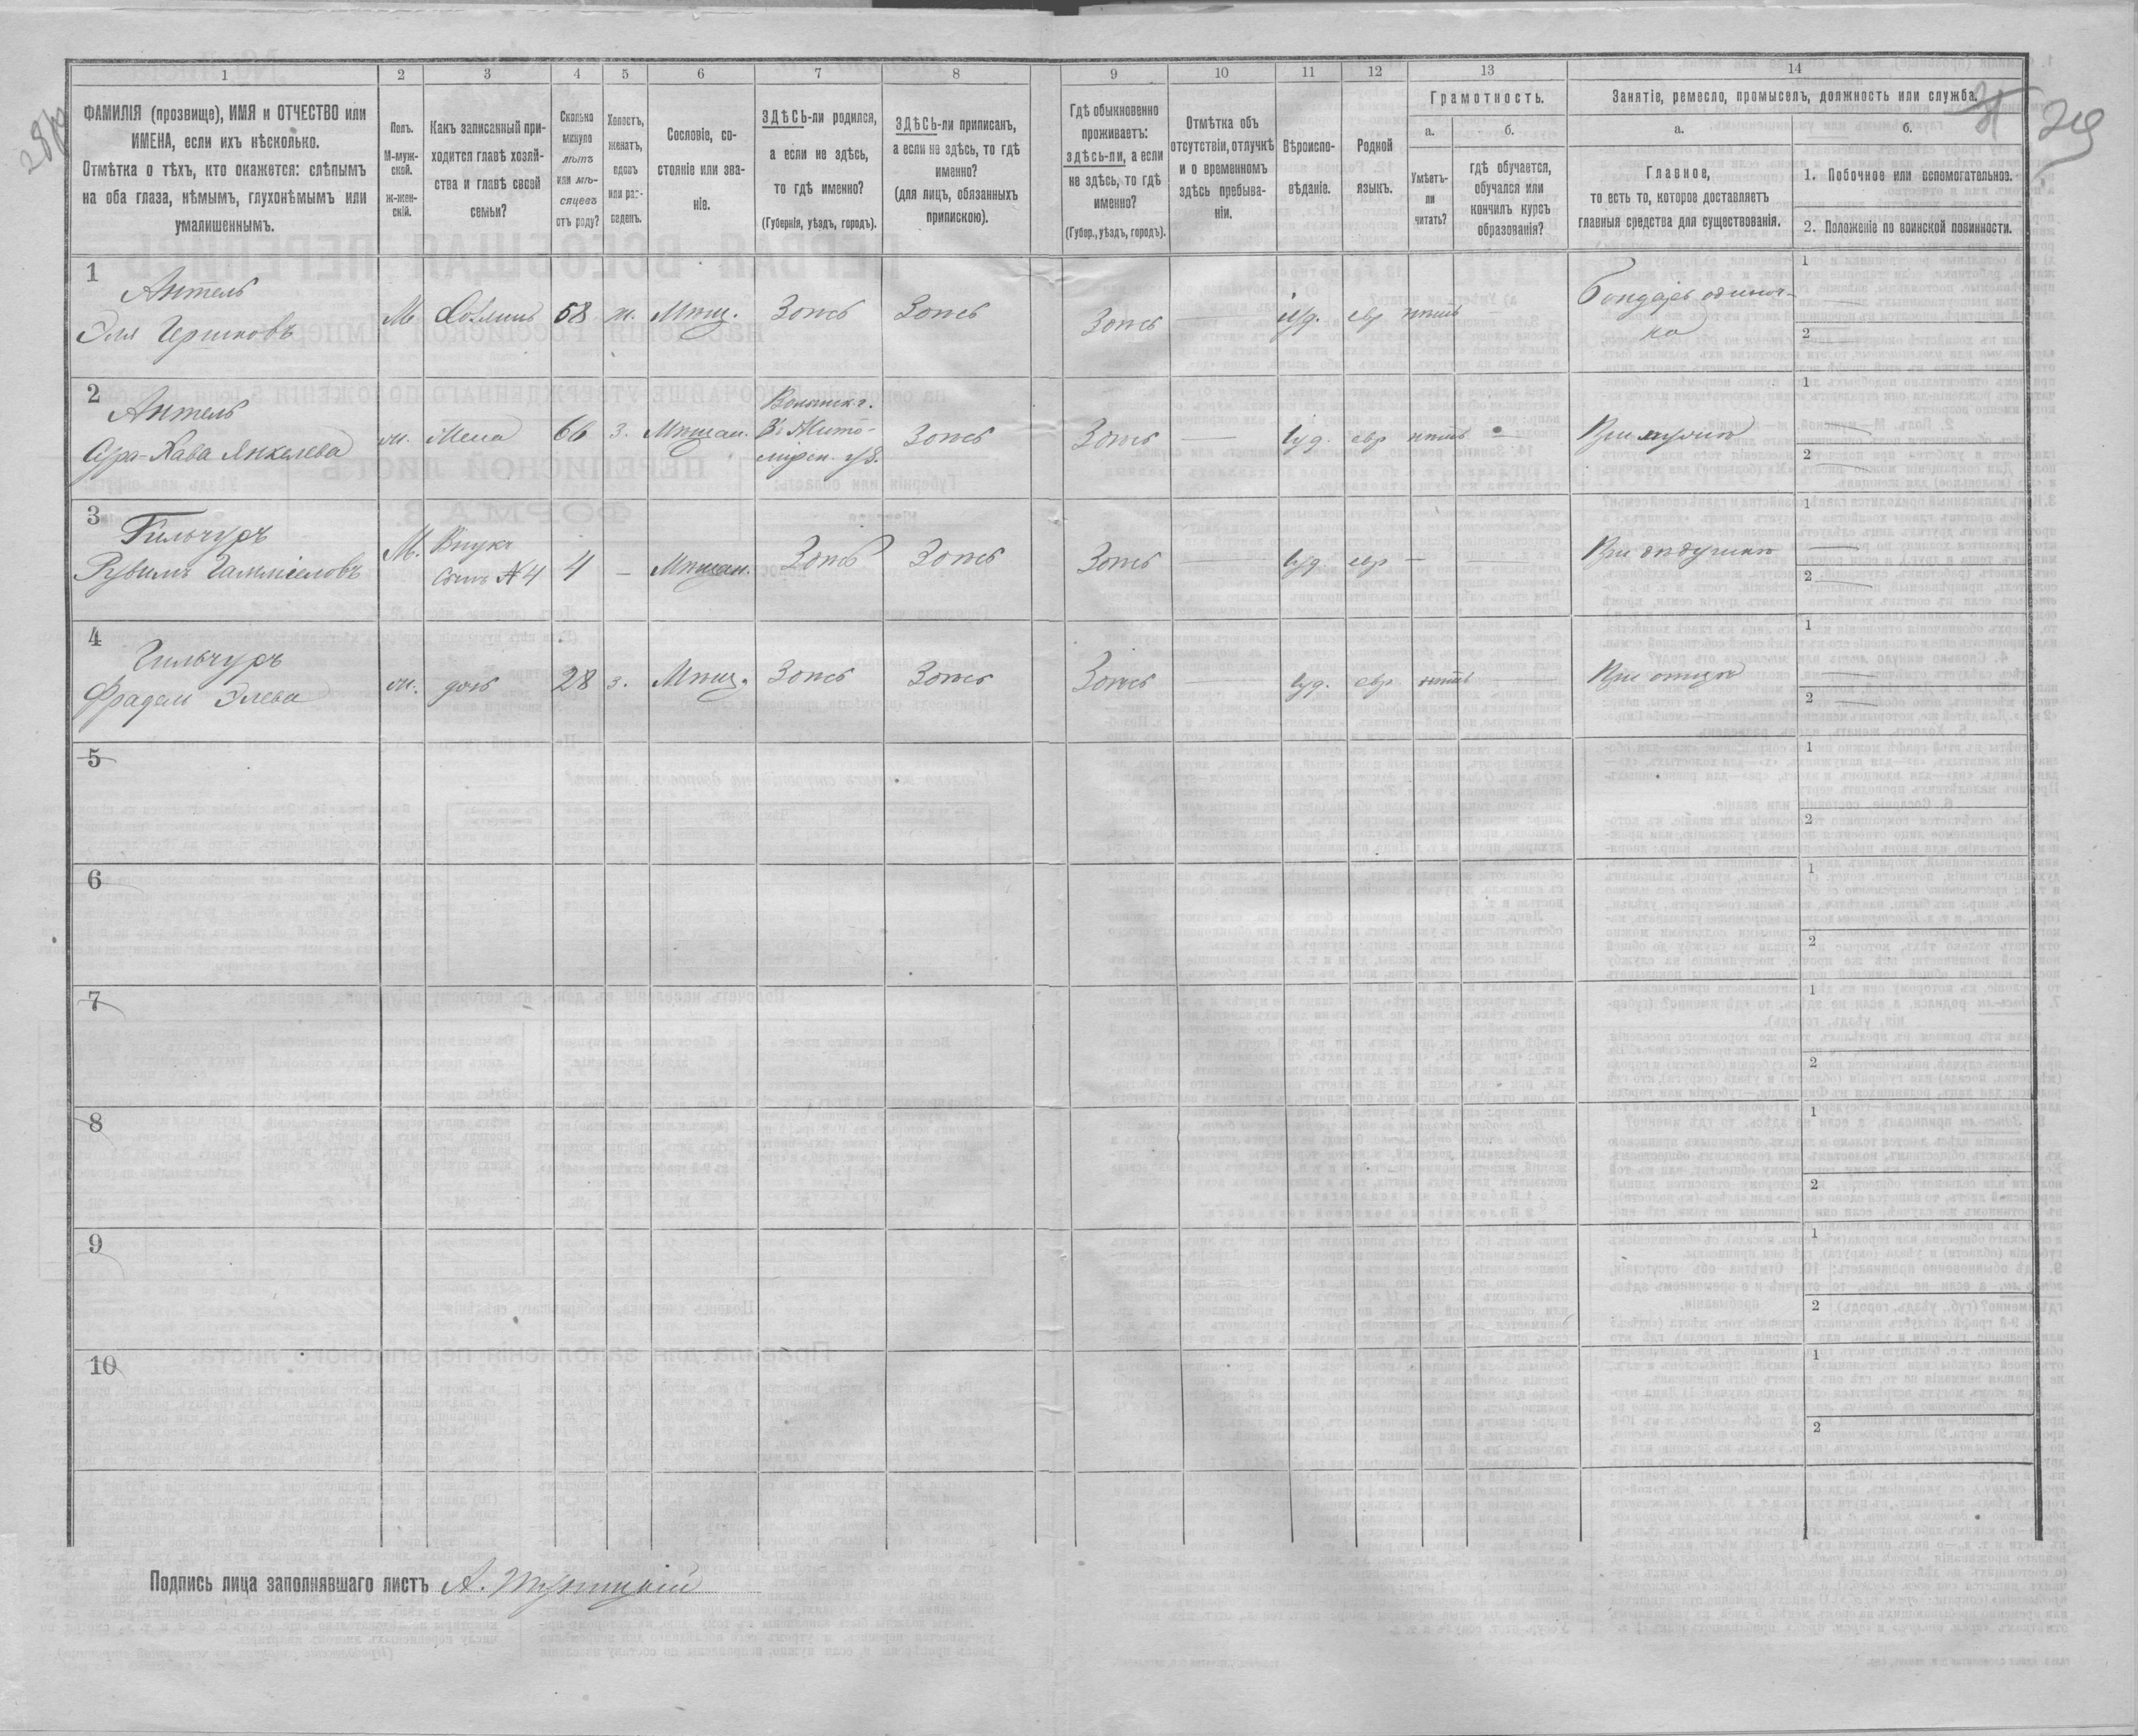 1 2 3 4 5 6 7 8 9 10 11 12 13 14
ФАМИЛІЯ (прозвище), ИМЯ и ОТЧЕСТВО или
ИМЕНА, если ихъ нѣсколько.
Отмѣтка о тѣхъ, кто окажется: слѣпымъ
на оба глаза, нѣмымъ, глухонѣмымъ или
умалишеннымъ.
Полъ.
М-муж-
ской.
ж-жен-
скій.
Какъ записанный при-
ходится главѣ хозяй-
ства и главѣ своей
семьи?
Сколько
минуло
лѣтъ
или мѣ-
сяцевъ
отъ роду?
Холостъ,
женатъ,
вдовъ
или раз-
веденъ.
Сословіе, со-
стояніе или зва-
ніе.
ЗДѢСЬ-ли родился,
а если не здѣсь,
то гдѣ именно?
(Губернія, уѣздъ, городъ).
ЗДѢСЬ-ли приписанъ,
а если не здѣсь, то гдѣ
именно?
(для лицъ, обязанныхъ
припискою).
Гдѣ обыкновенно
проживаетъ:
здѣсь-ли, а если
не здѣсь, то гдѣ
именно?
(Губер., уѣздъ, городъ).
Отмѣтка объ
отсутствіи, отлучкѣ
и о временномъ
здѣсь пребыва-
ніи.
Вѣроиспо-
вѣданіе.
Родной
языкъ.
Грамотность.
а.
Умѣетъ-
ли
читать?
б.
гдѣ обучается,
обучался или
кончилъ курсъ
образованія?
Занятіе, ремесло, промыселъ, должность или служба.
а.
Главное,
то есть то, которое доставляетъ
главныя средства для существованія.
б.
1. Побочное или вспомогательное.
2. Положеніе по воинской повинности.
1
Антель
Эля Гершковъ
М 58 ж. Мѣщ. Здѣсь Здѣсь Здѣсь — іуд. евр нѣтъ —
Бондарь одиноч-
ка
1 —
2
2
Антель
Сура-Хава Янкелева
ж. Жена 66 З. Мѣщан.
Волынск. г.
Жито-
мирск.
Здѣсь Здѣсь — іуд. евр нѣтъ
При мужѣ
1 —
2
3
Гильчуръ
Рувимъ
М. Внукъ
Сынъ №4
4 — Мѣщан. Здѣсь Здѣсь Здѣсь — іуд евр — —
При дѣдушкѣ
1 —
2 —
4
Гильчуръ
Фрадель Элева
ж. дочь 28 з. Мѣщ. Здѣсь Здѣсь Здѣсь — іуд. евр. нѣтъ —
При отцѣ
1 —
2 —
5 1
2
6 1
2
7 1
2
8 1
2
9 1
2
10 1
2
Подпись лица заполнявшаго листъ А.